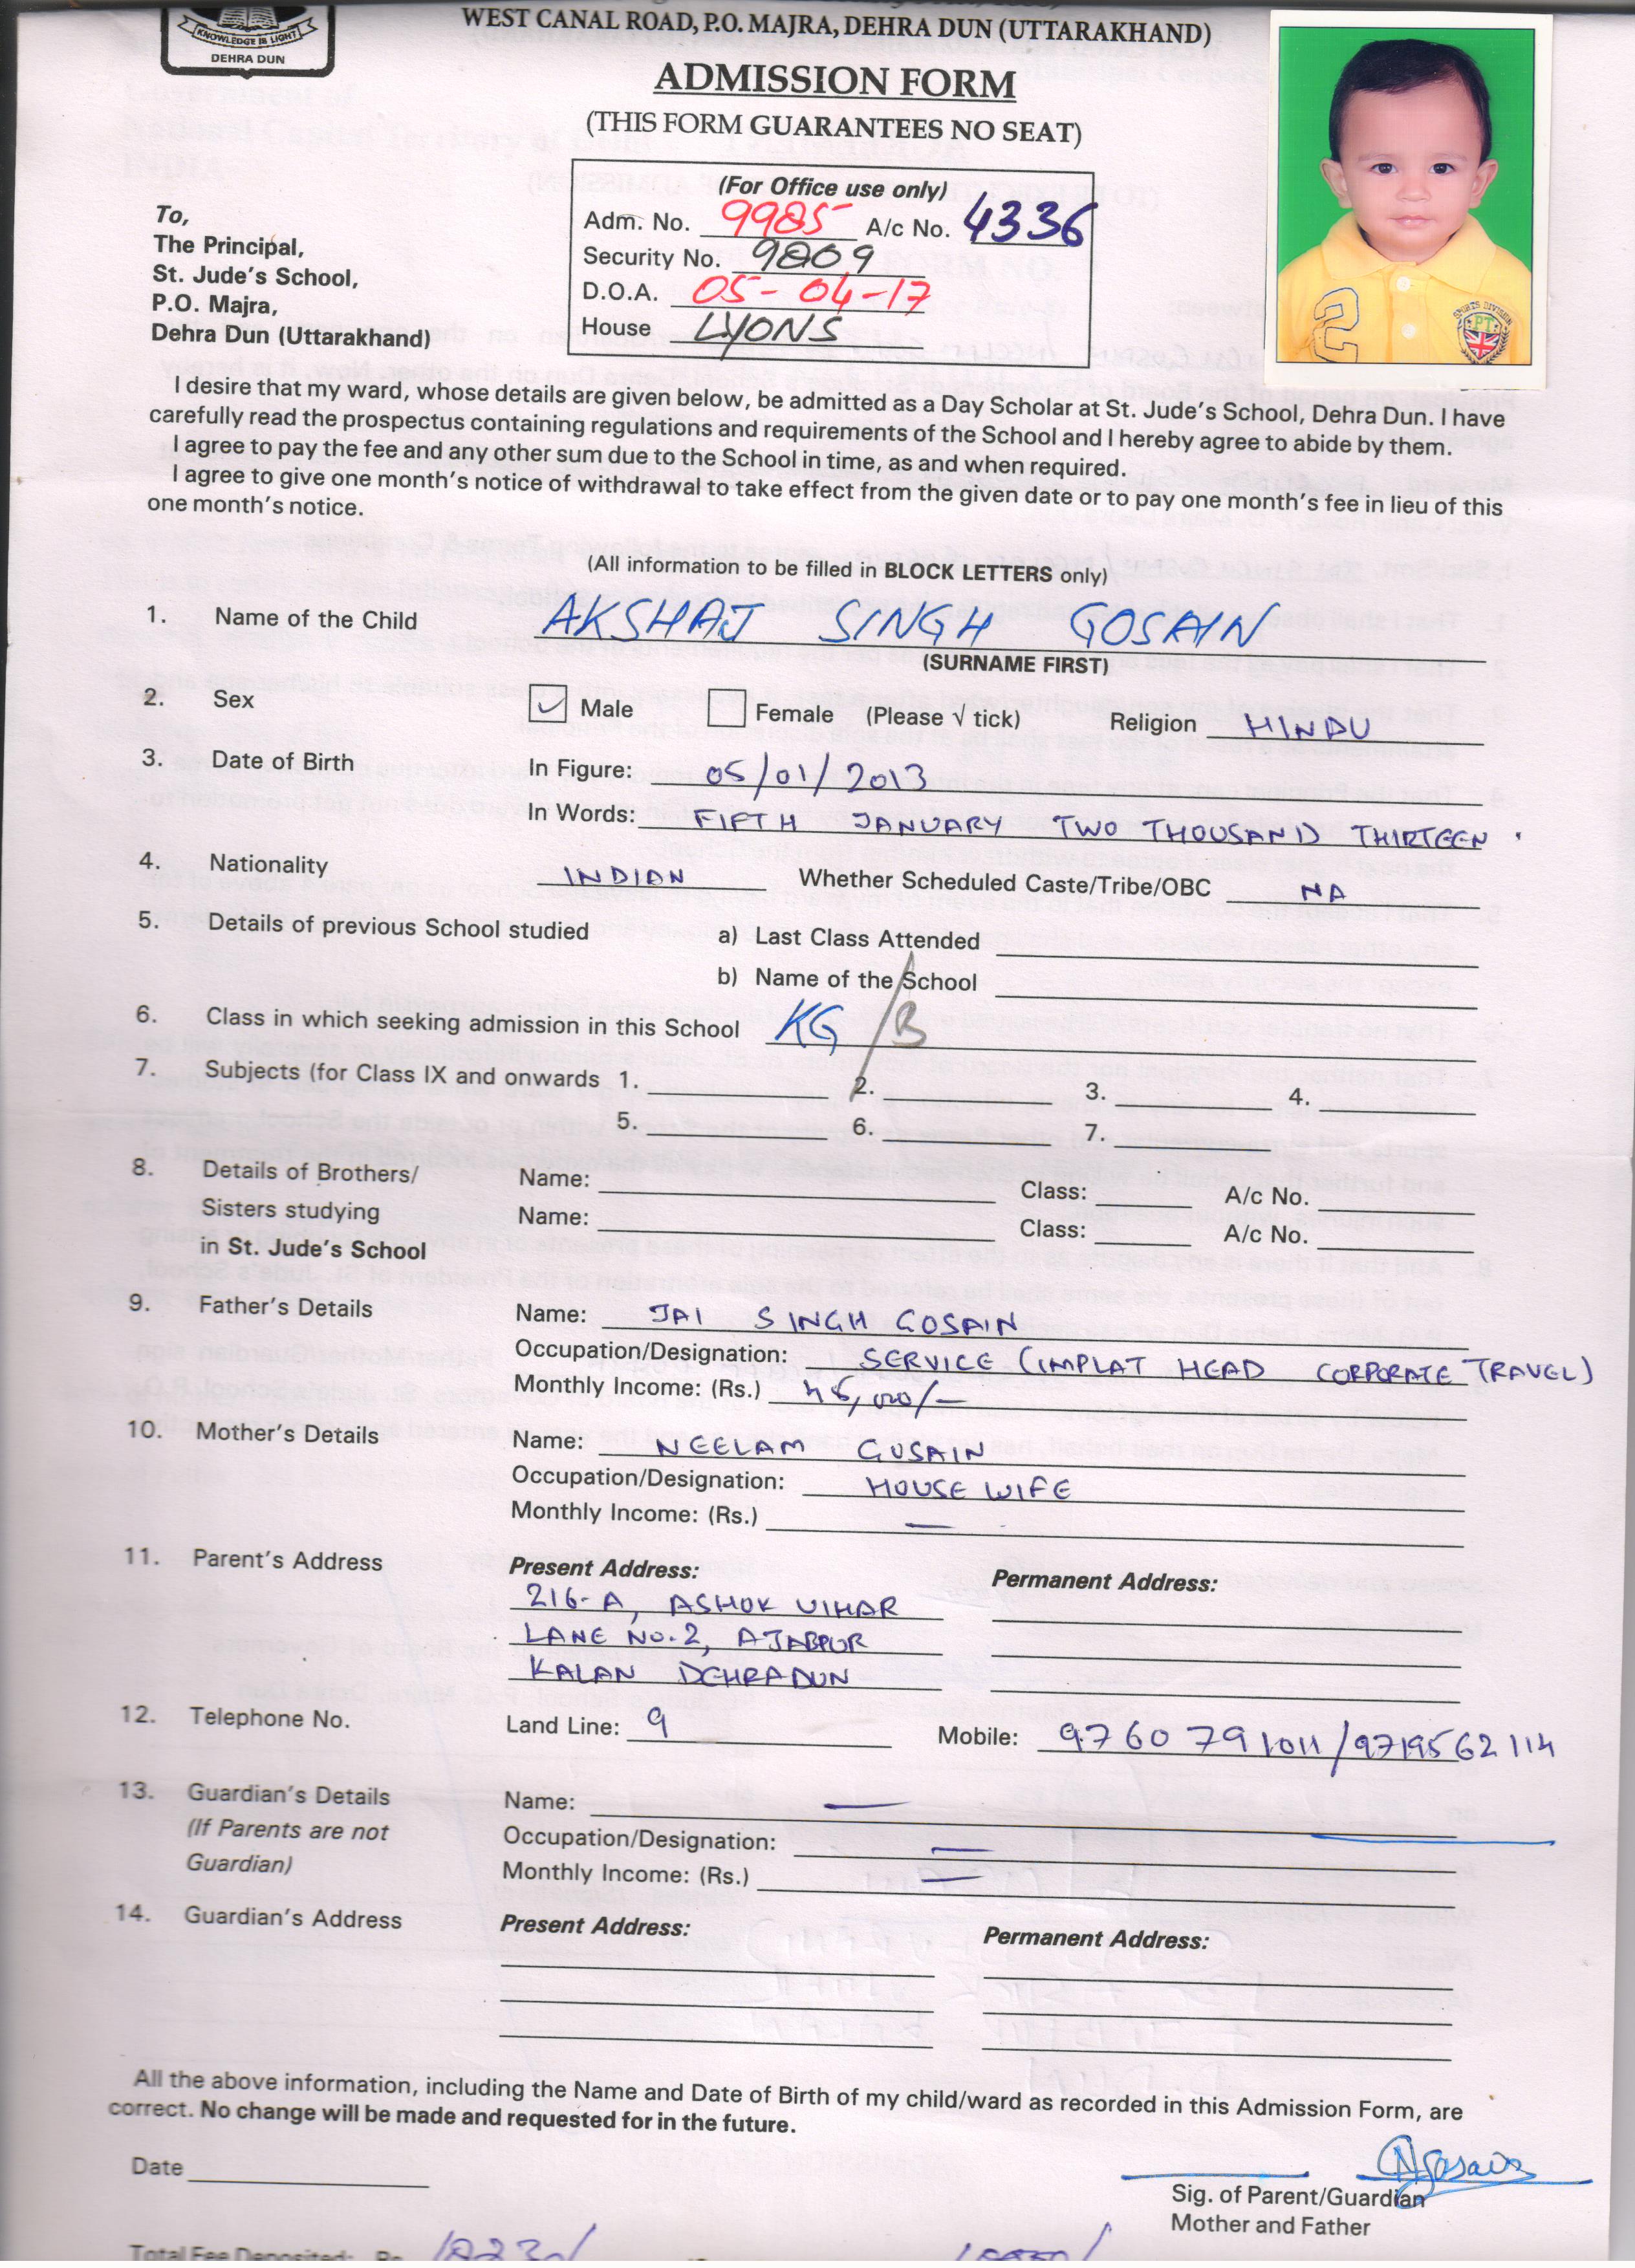 KNOWLEDGE IS LIGHT
DEHRA DUN
WEST CANAL ROAD, P.O. MAJRA, DEHRA DUN (UTTARAKHAND)
ADMISSION FORM
(THIS FORM GUARANTEES NO SEAT)
(For Office use only)
Adm. No. 9985 A/c No. 4336
Security No. 9809
D.O.A. 05-04-17
House LYONS
To,
The Principal,
St. Jude's School,
P.O. Majra,
Dehra Dun (Uttarakhand)
SPORTS DIVISION
PT
I desire that my ward, whose details are given below, be admitted as a Day Scholar at St. Jude's School, Dehra Dun. I have
carefully read the prospectus containing regulations and requirements of the School and I hereby agree to abide by them.
I agree to pay the fee and any other sum due to the School in time, as and when required.
I agree to give one month's notice of withdrawal to take effect from the given date or to pay one month's fee in lieu of this
one month's notice.
(All information to be filled in BLOCK LETTERS only)
1. Name of the Child AKSHAJ SINGH GOSAIN
(SURNAME FIRST)
2. Sex Male Female (Please √ tick) Religion HINDU
3. Date of Birth In Figure: 05/01/2013
In Words: FIFTH JANUARY TWO THOUSAND THIRTEEN .
4. Nationality INDIAN Whether Scheduled Caste/Tribe/OBC NA
5. Details of previous School studied a) Last Class Attended
b) Name of the School
6. Class in which seeking admission in this School KG/B
7. Subjects (for Class IX and onwards 1. 2. 3. 4.
5. 6. 7.
8. Details of Brothers/ Name: Class: A/c No.
Sisters studying Name: Class: A/c No.
in St. Jude's School
9. Father's Details Name: JAI SINGH GOSAIN
Occupation/Designation: SERVICE (IMPLAT HEAD CORPORATE TRAVEL)
Monthly Income: (Rs.) 45,000/-
10. Mother's Details Name: NEELAM GUSAIN
Occupation/Designation: HOUSE WIFE
Monthly Income: (Rs.) —
11. Parent's Address Present Address: Permanent Address:
216-A, ASHOK VIHAR
LANE NO.2, AJABPUR
KALAN DEHRADUN
12. Telephone No. Land Line: 9 Mobile: 9760791011/9719562114
13. Guardian's Details Name: —
(If Parents are not Occupation/Designation: —
Guardian) Monthly Income: (Rs.) —
14. Guardian's Address Present Address: Permanent Address:
All the above information, including the Name and Date of Birth of my child/ward as recorded in this Admission Form, are
correct. No change will be made and requested for in the future.
Date
NGosain
Sig. of Parent/Guardian
Mother and Father
Total Fee Deposited: Rs.